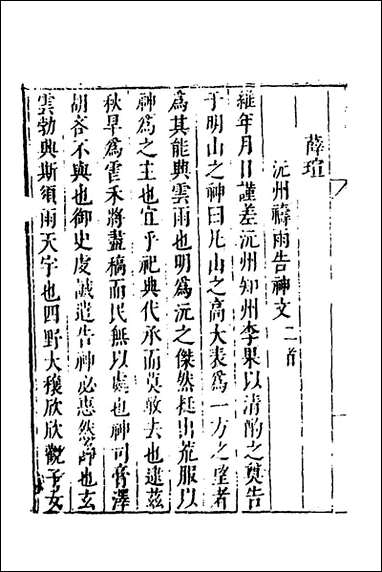 薛瑄
沅州禱雨告神文二首
維年月日謹差沅州知州李果以清酌之奠告
于明山之神曰凡山之高大表爲一方之望者
爲其能興雲雨也明爲沅之傑然挺出荒服以
神爲之主也宜乎祀典代承而莫敢去也逮茲
秋旱爲霍禾將盡槁而民無以處也神司膏澤
胡吝不與也御史虔誠遣告神必惠然也玄
雲勃興斯須雨天宇也四野大穫欣欣觀子女